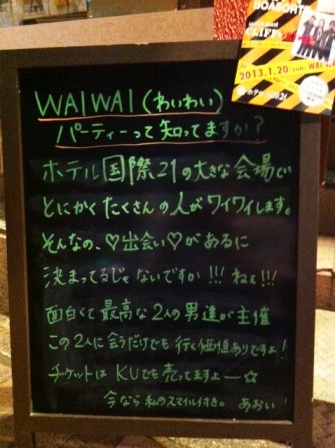 2013.1.20
WAIWAI(わいわい)
パーティーって知ってますか?
ホテル国際21の大きな会場で
とにかくたくさんの人がワイワイします。
そんなの、♡出会い♡があるに
決まってるじゃないですか!!! ねぇ!!!
面白くて最高な2人の男達が主催
この2人に会うだけでも行く価値ありですよ!
チケットはKUでも売ってますよー☆
今なら私のスマイル付き。 あおい